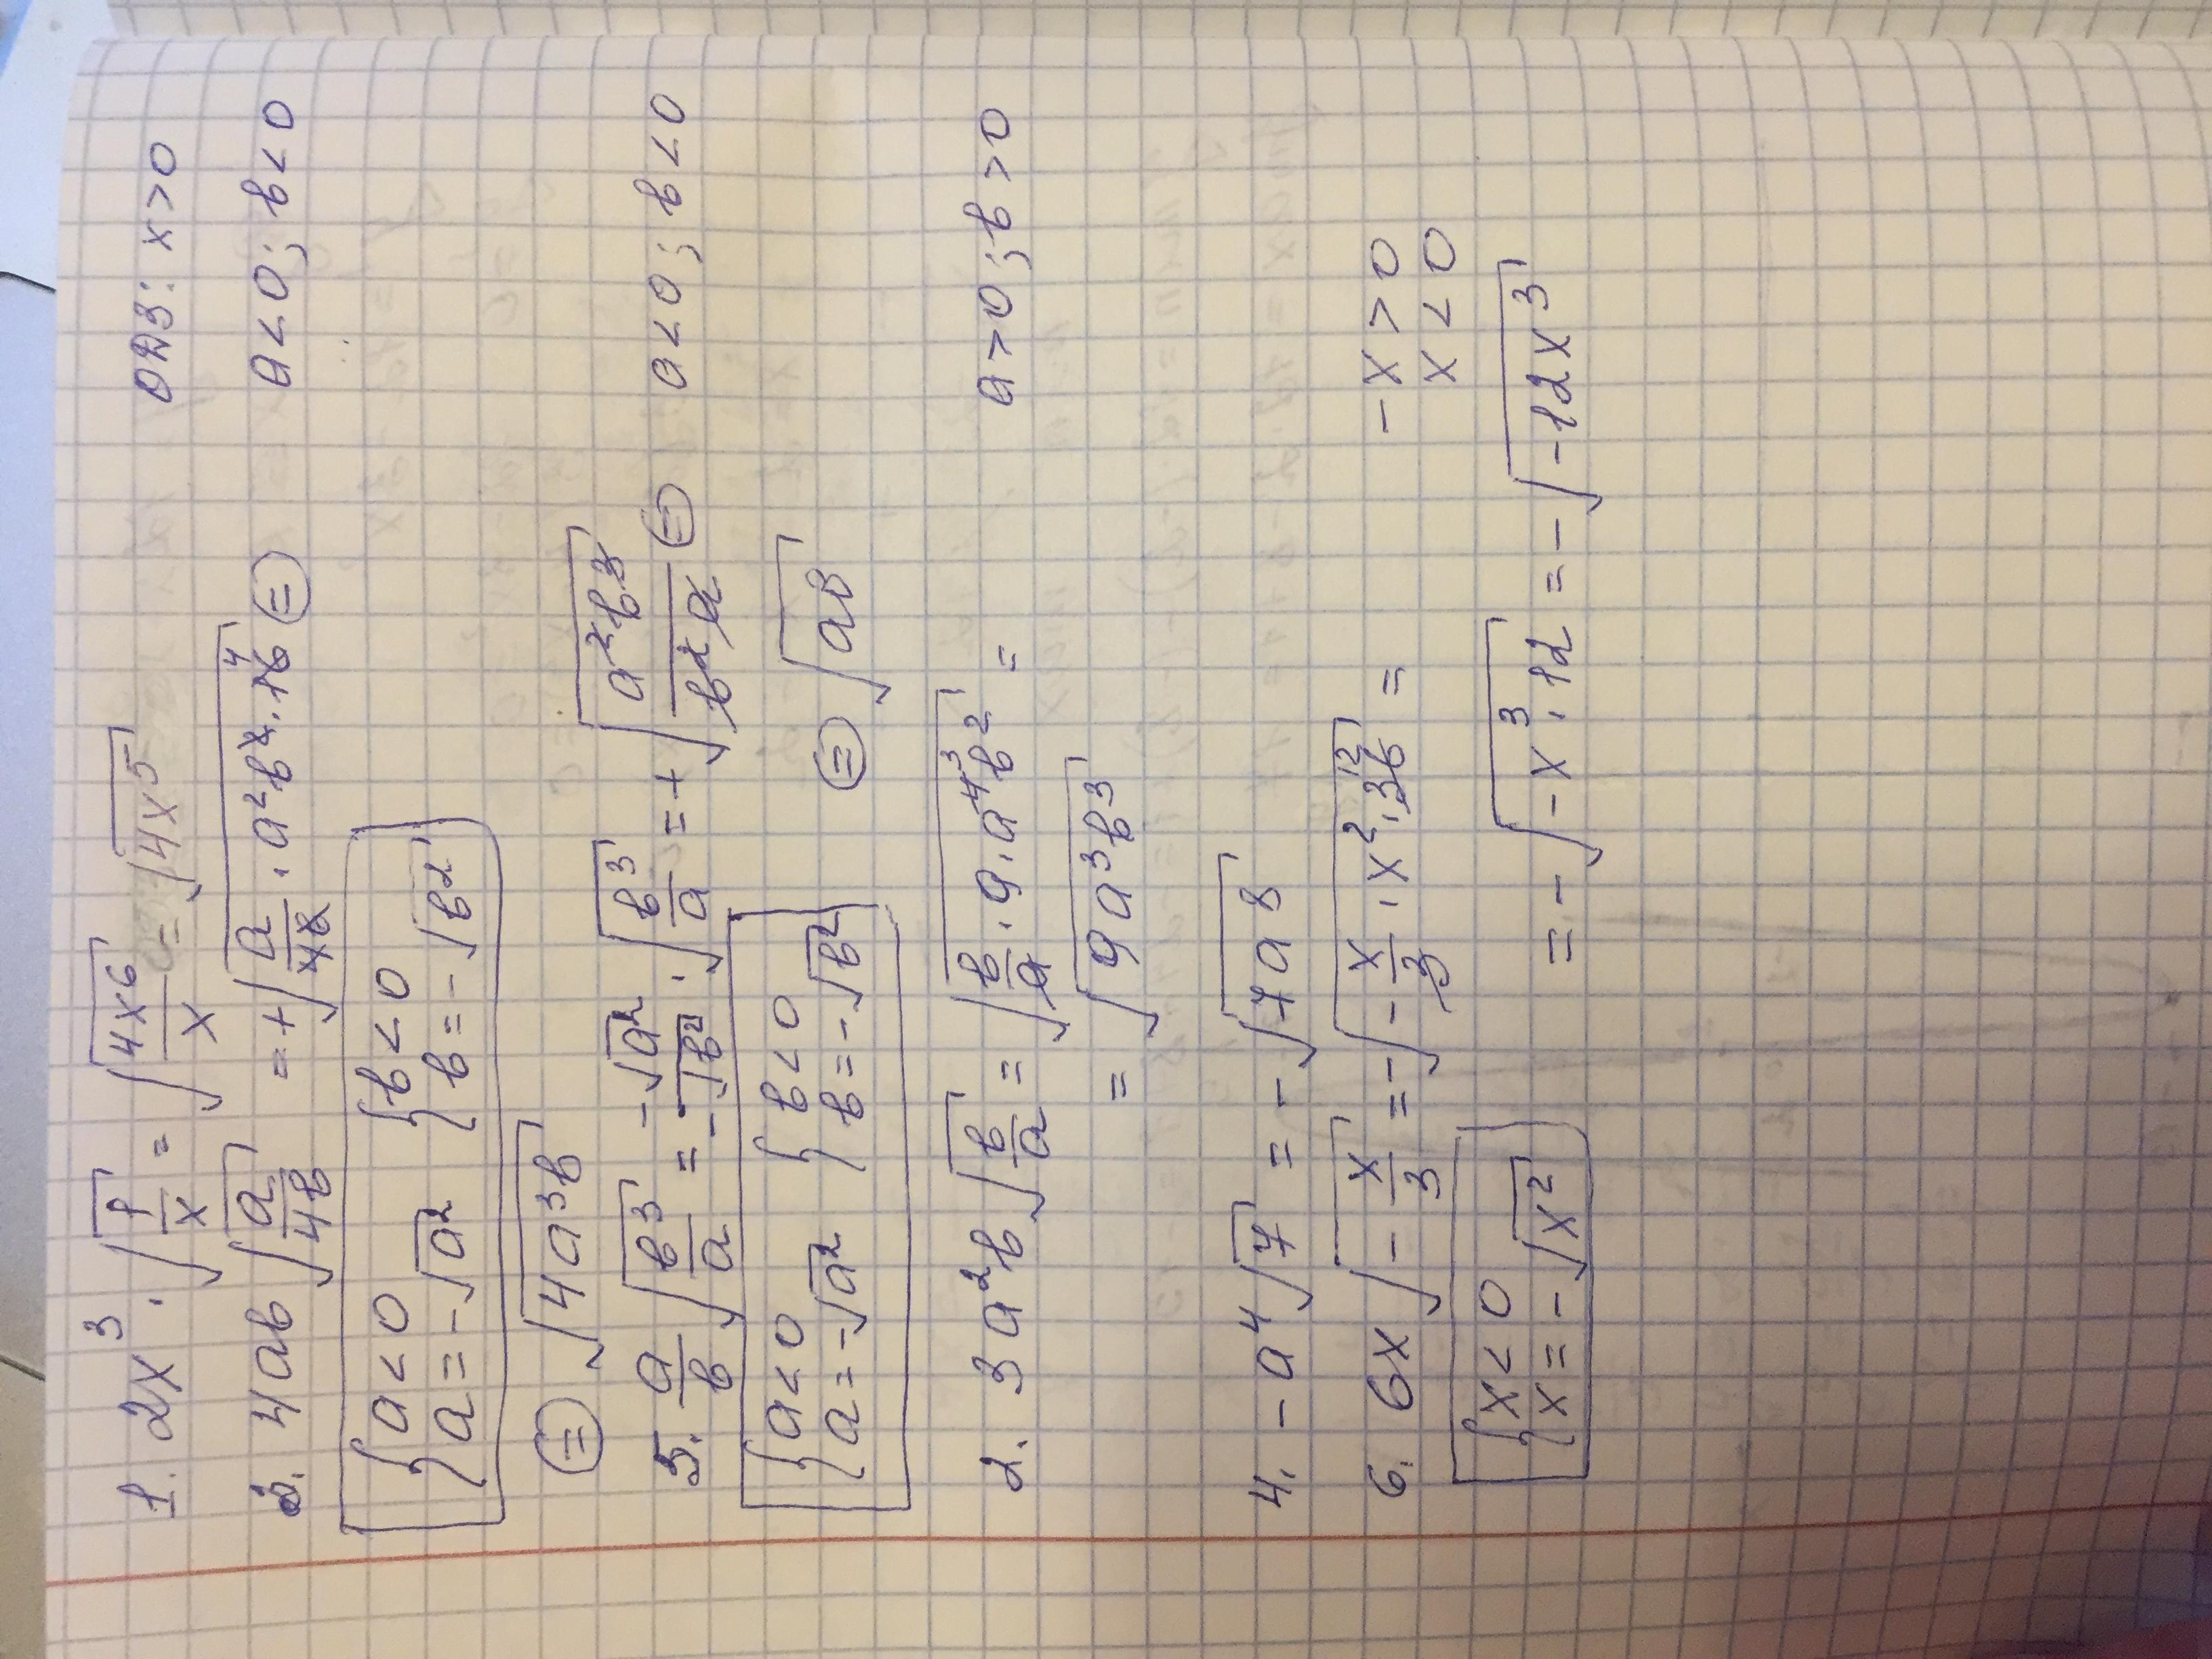 1. 2x³ · √(1/x) = √(4x⁶/x) = √(4x⁵) ОДЗ: x > 0
3. 4ab √(a/4b) = + √(a/4b · a²b² · 16 4) ⊜ a < 0; b < 0
{a < 0 a = -√a² {b < 0 b = -√b²
⊜ √(4a³b)
5. a/b √(b³/a) = -√a²/-√b² · √(b³/a) = + √(a²b³/b²a) ⊜ a < 0; b < 0
{a < 0 a = -√a² {b < 0 b = -√b² ⊜ √(ab)
2. 3a²b √(b/a) = √(b/a · 9 · a⁴ ³ b²) = a > 0; b > 0
= √(9a³b³)
4. -a⁴√7 = -√(7a8)
6. 6x √(-x/3) = -√(-x/3 · x² · 36 12) = -x > 0
x < 0
{x < 0 x = -√x² = -√(-x³ · 12) = -√(-12x³)